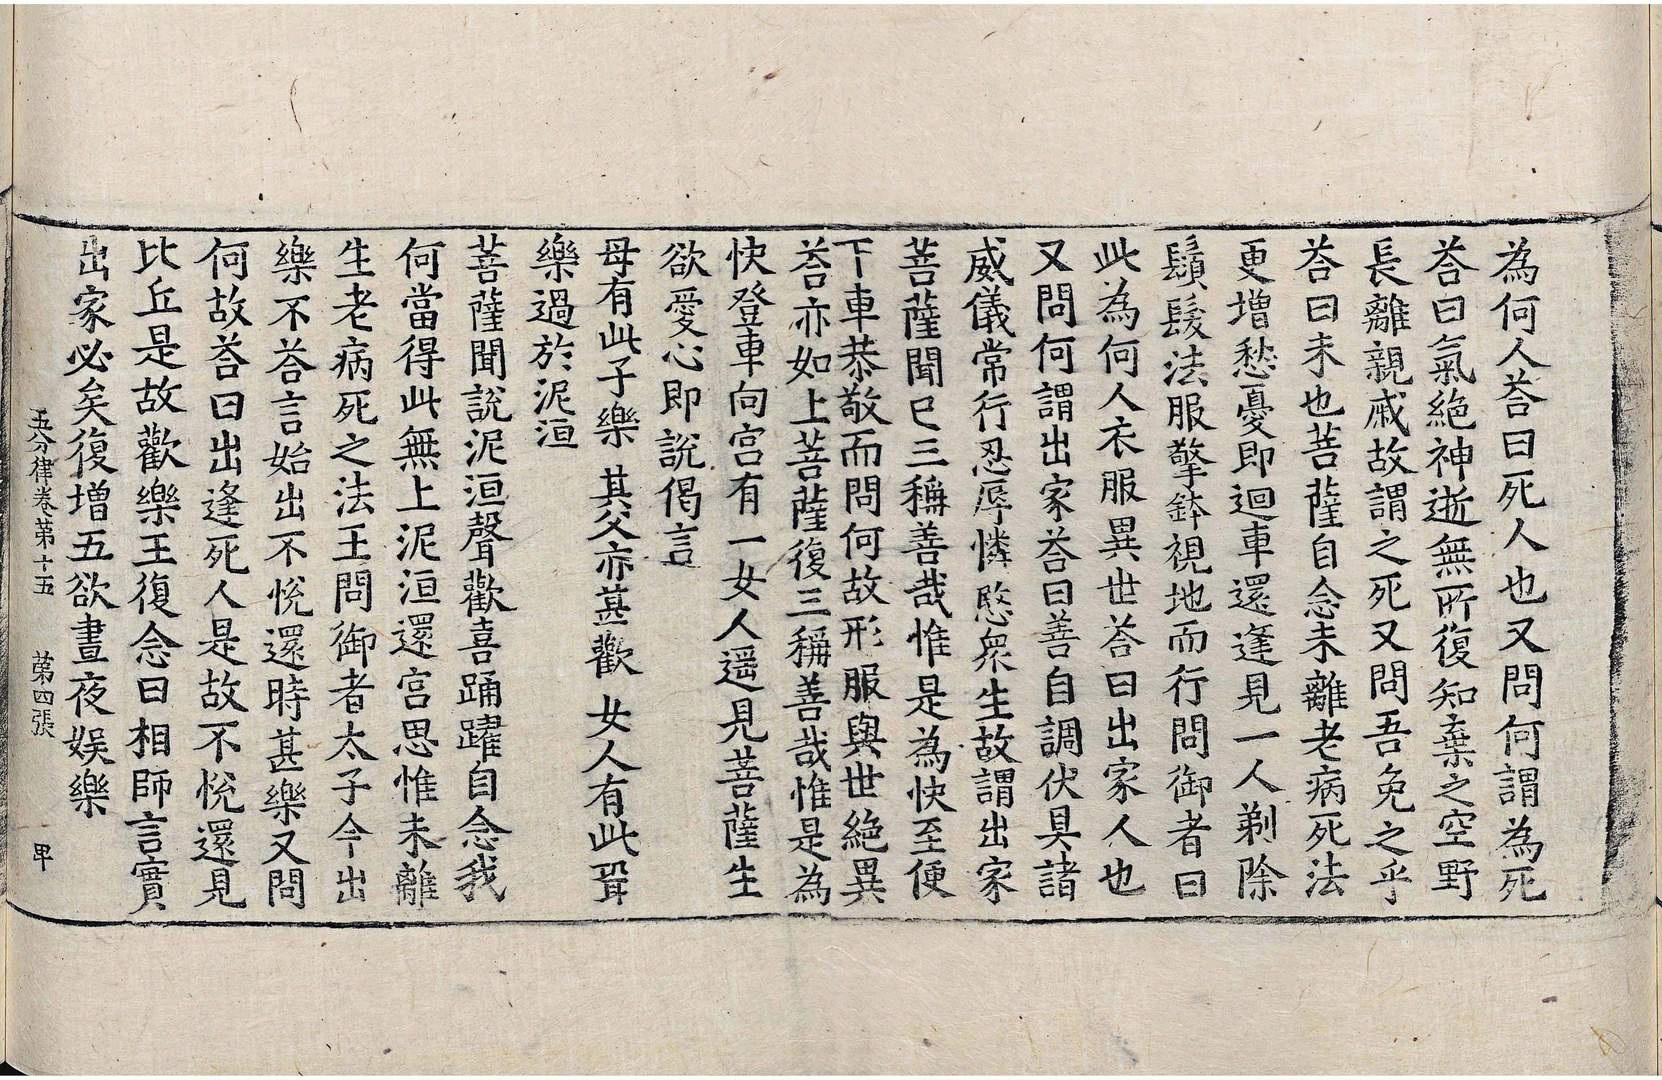 為何人荅曰死人也又問何謂為死
荅曰氣絕神逝無所復知棄之空野
長離親戚故謂之死又問吾免之乎
荅曰未也菩薩自念未離老病死法
更增愁憂即迴車還逢見一人剃除
鬚髮法服擎鉢視地而行問御者曰
此為何人衣服異世荅曰出家人也
又問何謂出家荅曰善自調伏具諸
威儀常行忍辱憐愍衆生故謂出家
菩薩聞已三稱善哉惟是為快至便
下車恭敬而問何故形服與世絕異
荅亦如上菩薩復三稱善哉惟是為
快登車向宮有一女人遥見菩薩生
欲愛心即說偈言
母有此子樂 其父亦甚歡 女人有此聟
樂過於泥洹
菩薩聞說泥洹聲歡喜踊躍自念我
何當得此無上泥洹還宮思惟未離
生老病死之法王問御者太子今出
樂不荅言始出不悅還時甚樂又問
何故荅曰出逢死人是故不悅還見
比丘是故歡樂王復念曰相師言實
出家必矣復增五欲晝夜娛樂
五分律卷第十五 第四張 甲